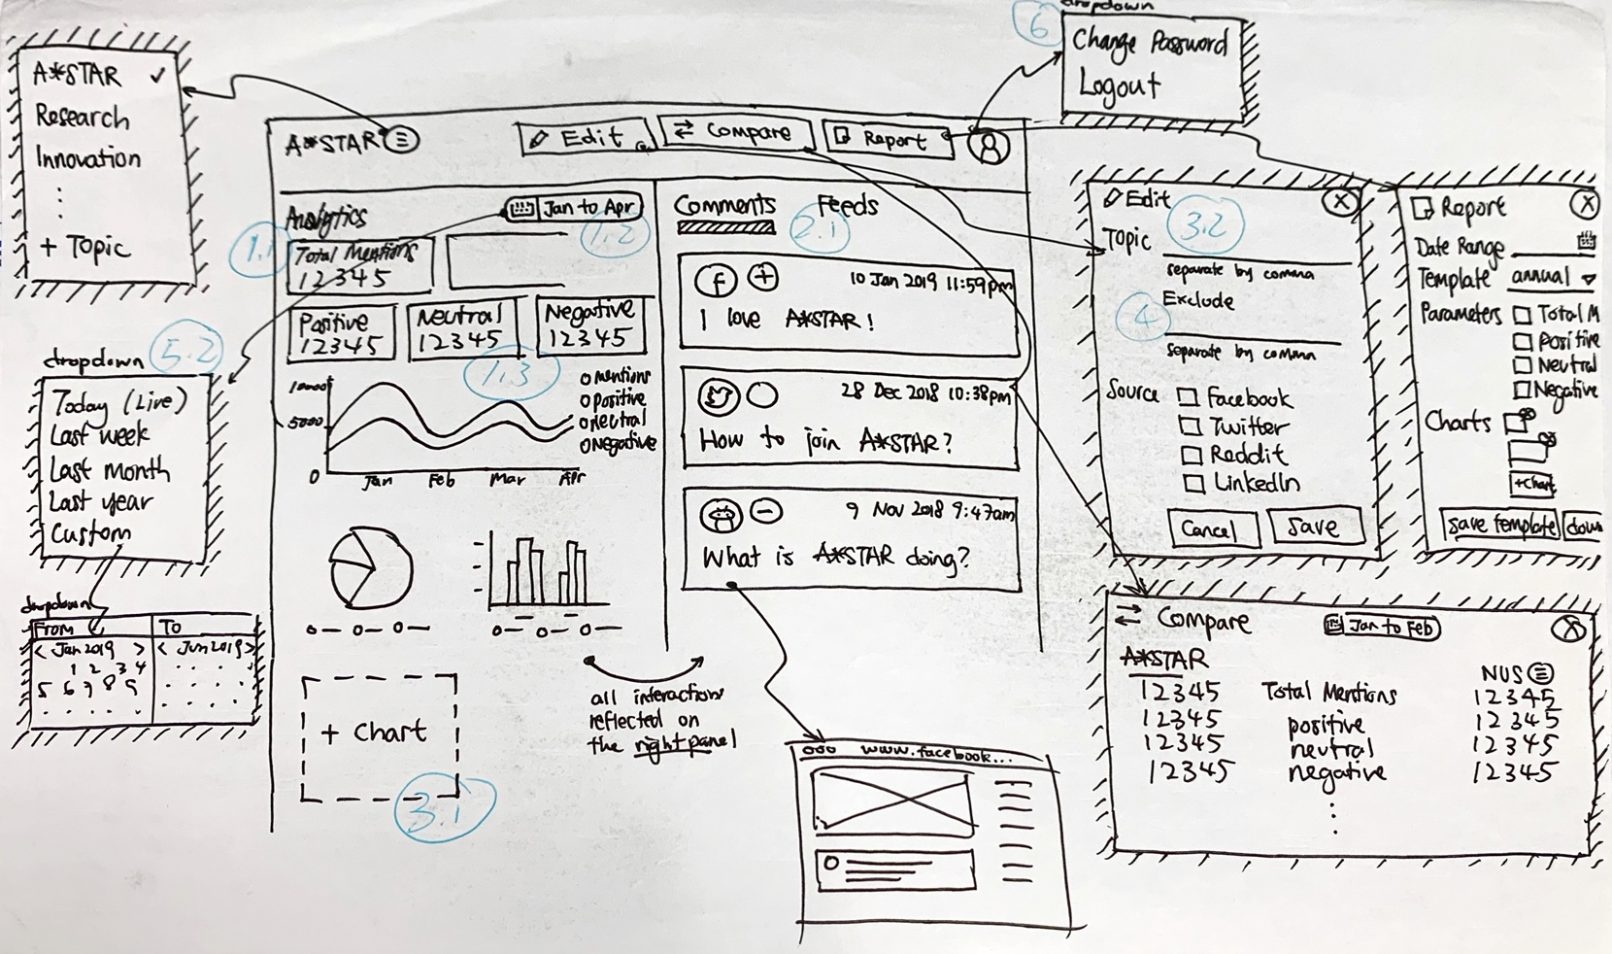 dropdown
6
Change Password
Logout
A*STAR ✓
Research
Innovation
+ Topic
A*STAR
Edit
Compare
Report
Analytics
Jan to Apr
1.1
1.2
Total Mentions
12345
Positive
12345
Neutral
12345
Negative
12345
1.3
10000
5000
0
Jan Feb Mar Apr
mentions
positive
neutral
Negative
+ Chart
3.1
all interactions
reflected on
the right panel
Comments
Feeds
2.1
+
10 Jan 2019 11:59pm
I love A*STAR!
28 Dec 2018 10:38pm
How to join A*STAR?
9 Nov 2018 9:47am
What is A*STAR doing?
www.facebook...
dropdown
5.2
Today (Live)
Last week
Last month
Last year
Custom
dropdown
From To
< Jan 2019 > < Jun 2019 >
1 2 3 4
5 6 7 8 9
Edit
X
3.2
Topic
separate by comma
Exclude
4
separate by comma
Source
Facebook
Twitter
Reddit
LinkedIn
Cancel
Save
Report
X
Date Range
Template annual
Parameters Total M
Positive
Neutral
Negative
Charts
+Chart
save template
down
Compare
Jan to Feb
X
A*STAR
NUS
12345 Total Mentions 12345
12345 positive 12345
12345 neutral 12345
12345 negative 12345